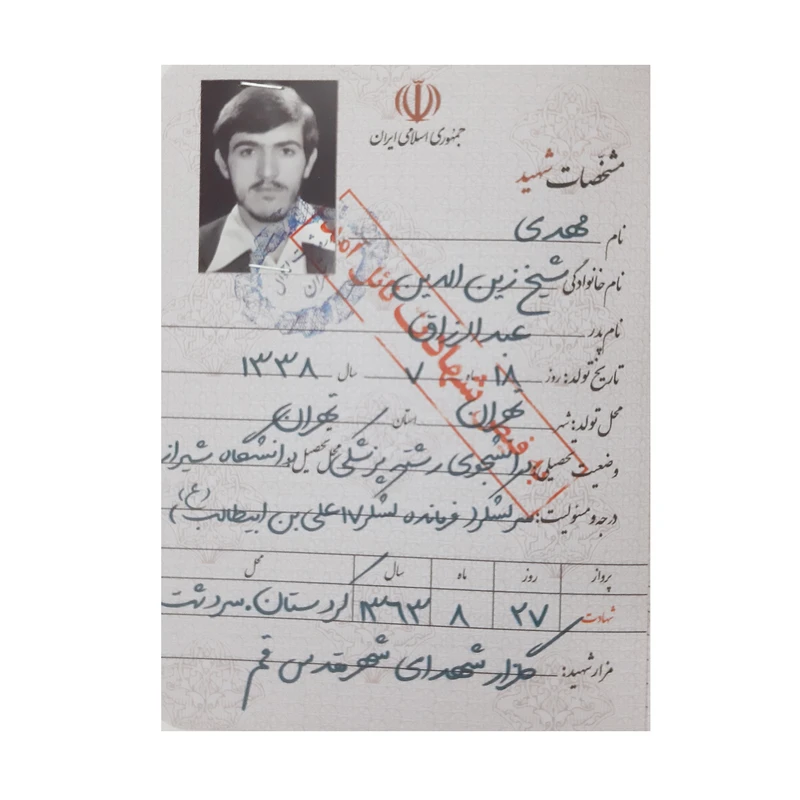 جمهوری اسلامی ایران
مشخصات شهید
نام مهدی
نام خانوادگی شیخ زین الدین
نام پدر عبدالرزاق
تاریخ تولد: روز ۱۸ ماه ۷ سال ۱۳۳۸
محل تولد: شهر تهران استان تهران
وضعیت تحصیلی: دانشجوی رشته پزشکی محل تحصیل: دانشگاه شیراز
درجه و مسئولیت: سرلشکر (فرمانده لشکر ۱۷ علی بن ابیطالب (ع))
پرواز روز ماه سال محل
شهادت ۲۷ ۸ ۱۳۶۳ کردستان. سردشت
مزار شهید: گلزار شهدای شهر مقدس قم
به فیض شهادت نائل آمد